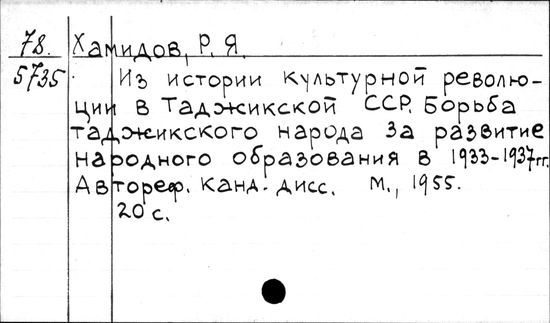 78. Хамидов, Р. Я.
5735 Из истории культурной револю-
ции в Таджикской ССР. Борьба
таджикского народа за развитие
народного образования в 1933-1937гг.
Автореф. канд. дисс. М., 1955.
20 с.